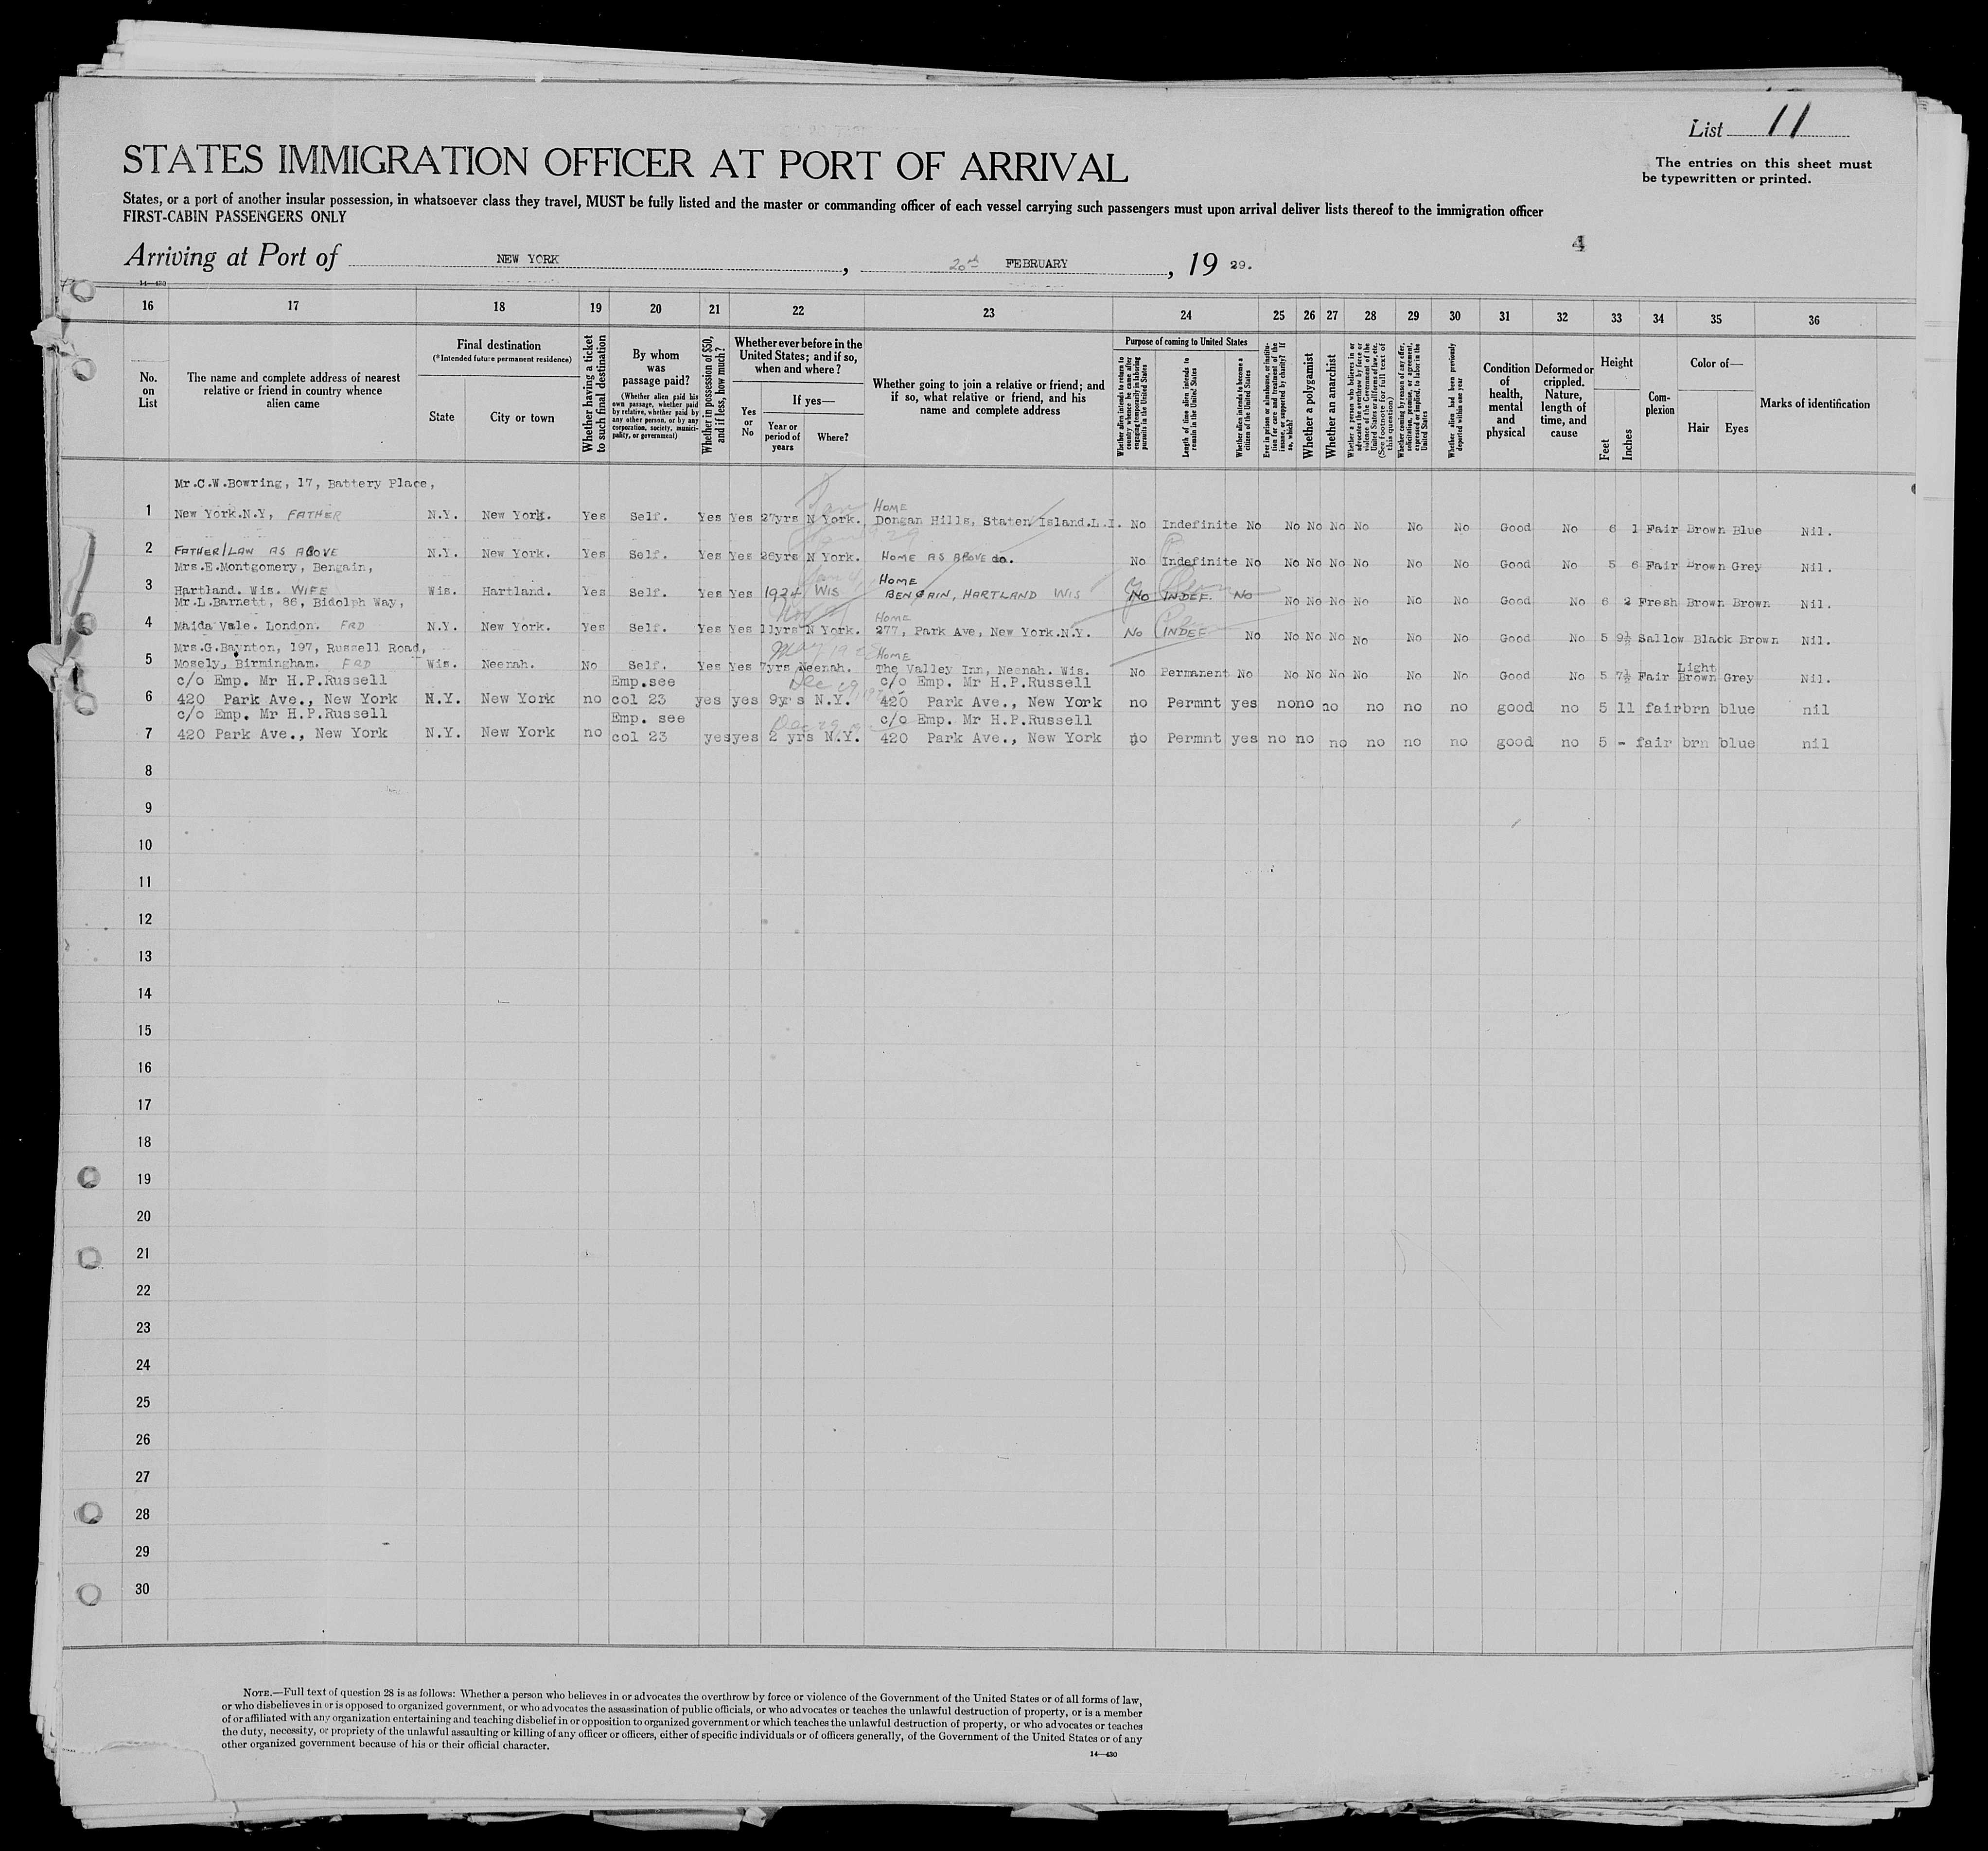 List 11
The entries on this sheet must
be typewritten or printed.
STATES IMMIGRATION OFFICER AT PORT OF ARRIVAL
States, or a port of another insular possession, in whatsoever class they travel, MUST be fully listed and the master or commanding officer of each vessel carrying such passengers must upon arrival deliver lists thereof to the immigration officer
FIRST-CABIN PASSENGERS ONLY
4
Arriving at Port of NEW YORK, 20th FEBRUARY, 19 29.
14—430
16 17 18 19 20 21 22 23 24 25 26 27 28 29 30 31 32 33 34 35 36
No. on List
The name and complete address of nearest relative or friend in country whence alien came
Final destination
(*Intended future permanent residence)
State
City or town
Whether having a ticket to such final destination
By whom was passage paid?
(Whether alien paid his own passage, whether paid by relative, whether paid by any other person, or by any corporation, society, municipality, or government)
Whether in possession of $50, and if less, how much?
Whether ever before in the United States; and if so, when and where?
Yes or No
If yes—
Year or period of years
Where?
Whether going to join a relative or friend; and if so, what relative or friend, and his name and complete address
Purpose of coming to United States
Whether alien intends to return to country whence he came after engaging temporarily in laboring pursuits in the United States
Length of time alien intends to remain in the United States
Whether alien intends to become a citizen of the United States
Ever in prison or almshouse, or institution for care and treatment of the insane, or supported by charity? If so, which?
Whether a polygamist
Whether an anarchist
Whether a person who believes in or advocates the overthrow by force or violence of the Government of the United States or all forms of law, etc. (See footnote for full text of this question)
Whether coming by reason of any offer, solicitation, promise, or agreement, expressed or implied, to labor in the United States
Whether alien had been previously deported within one year
Condition of health, mental and physical
Deformed or crippled. Nature, length of time, and cause
Height
Feet
Inches
Complexion
Color of—
Hair
Eyes
Marks of identification
Mr.C.W.Bowring, 17, Battery Place,
HOME
1 New York.N.Y, FATHER N.Y. New York. Yes Self. Yes Yes 27yrs N York. Dongan Hills, Staten Island.L.I. No Indefinite No No No No No No No Good No 6 1 Fair Brown Blue Nil.
2 FATHER/LAW AS ABOVE N.Y. New York. Yes Self. Yes Yes 26yrs N York. HOME AS ABOVE do. No Indefinite No No No No No No No Good No 5 6 Fair Brown Grey Nil.
Mrs.E.Montgomery, Bengain,
HOME
3 Hartland. Wis. WIFE Wis. Hartland. Yes Self. Yes Yes 1924 WIS BENGAIN, HARTLAND WIS No INDEF. No No No No No No No Good No 6 2 Fresh Brown Brown Nil.
Mr.L.Barnett, 86, Bidolph Way,
HOME
4 Maida Vale. London. FRD N.Y. New York. Yes Self. Yes Yes 11yrs N York. 277, Park Ave, New York.N.Y. No INDEF No No No No No No No Good No 5 9½ Sallow Black Brown Nil.
Mrs.G.Baynton, 197, Russell Road,
HOME
5 Mosely, Birmingham. FRD Wis. Neenah. No Self. Yes Yes 7yrs Neenah. The Valley Inn, Neenah. Wis. No Permanent No No No No No No No Good No 5 7½ Fair Light Brown Grey Nil.
c/o Emp. Mr H.P.Russell Emp.see c/o Emp. Mr H.P.Russell
6 420 Park Ave., New York N.Y. New York no col 23 yes yes 9yrs N.Y. 420 Park Ave., New York no Permnt yes no no no no no no good no 5 11 fair brn blue nil
c/o Emp. Mr H.P.Russell Emp. see c/o Emp. Mr H.P.Russell
7 420 Park Ave., New York N.Y. New York no col 23 yes yes 2 yrs N.Y. 420 Park Ave., New York no Permnt yes no no no no no no good no 5 - fair brn blue nil
8
9
10
11
12
13
14
15
16
17
18
19
20
21
22
23
24
25
26
27
28
29
30
NOTE.—Full text of question 28 is as follows: Whether a person who believes in or advocates the overthrow by force or violence of the Government of the United States or of all forms of law,
or who disbelieves in or is opposed to organized government, or who advocates the assassination of public officials, or who advocates or teaches the unlawful destruction of property, or is a member
of or affiliated with any organization entertaining and teaching disbelief in or opposition to organized government or which teaches the unlawful destruction of property, or who advocates or teaches
the duty, necessity, or propriety of the unlawful assaulting or killing of any officer or officers, either of specific individuals or of officers generally, of the Government of the United States or of any
other organized government because of his or their official character.
14—430